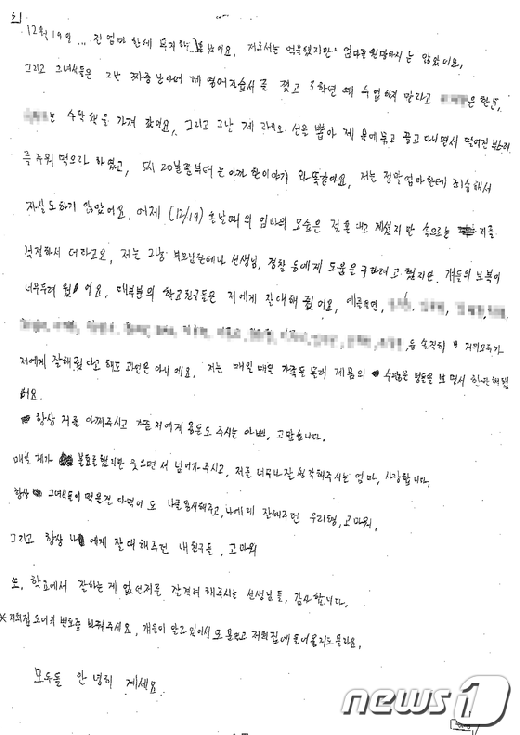 12월 19일 ... 전 엄마한테 혼났어요. 저로서는 억울했지만 엄마를 원망하지는 않았어요.
그리고 그 녀석들은 그날 짜증난다며 제 영어자습서를 찢고 3학년 때 수업하지 말라고 은 한문,
는 수학책을 가져갔어요. 그리고 그날 제 라디오 선을 뽑아 제 목에 묶고 끌고 다니면서 떨어진 부스러기를
주워 먹으라 하였고, 5시 20분쯤부터는 아까 한 이야기와 똑같아요. 저는 정말 엄마한테 죄송해서
자살도 하지 않았어요. 어제 (12/19) 혼날 때의 엄마의 모습은 절 혼내고 계셨지만 속으로는 저를
걱정하시더라고요. 저는 그냥 부모님한테나 선생님, 경찰 등에게 도움을 구하려고 했지만, 걔들의 보복이
너무 두려웠어요. 대부분의 학교친구들은 저에게 잘 대해줬어요. 예를들면,
등 솔직히 거의 모두가
저에게 잘해줬다고 해도 과언은 아니에요. 저는 매일매일 가족들 몰래 제 몸의 수많은 멍들을 보면서 한탄했
어요.
항상 저를 아껴주시고 가끔 저에게 용돈도 주시는 아빠, 고맙습니다.
매일 제가 불효를 했지만 웃으면서 넘어가 주시고, 저를 너무나 잘 생각해주시는 엄마, 사랑합니다.
항상 그 녀석들이 먹을 걸 다 먹어도 나를 용서해주고, 나에게 잘해주던 우리형, 고마워.
그리고 항상 나에게 잘 대해주던 내 친구들, 고마워.
또, 학교에서 잘하는 게 없던 저를 잘 격려해주시는 선생님들, 감사합니다.
※ 저희집 도어키 번호를 바꿔주세요. 걔들이 알고 있어서 또 문 열고 저희집에 들어올지도 몰라요.
모두들 안녕히 계세요
news1